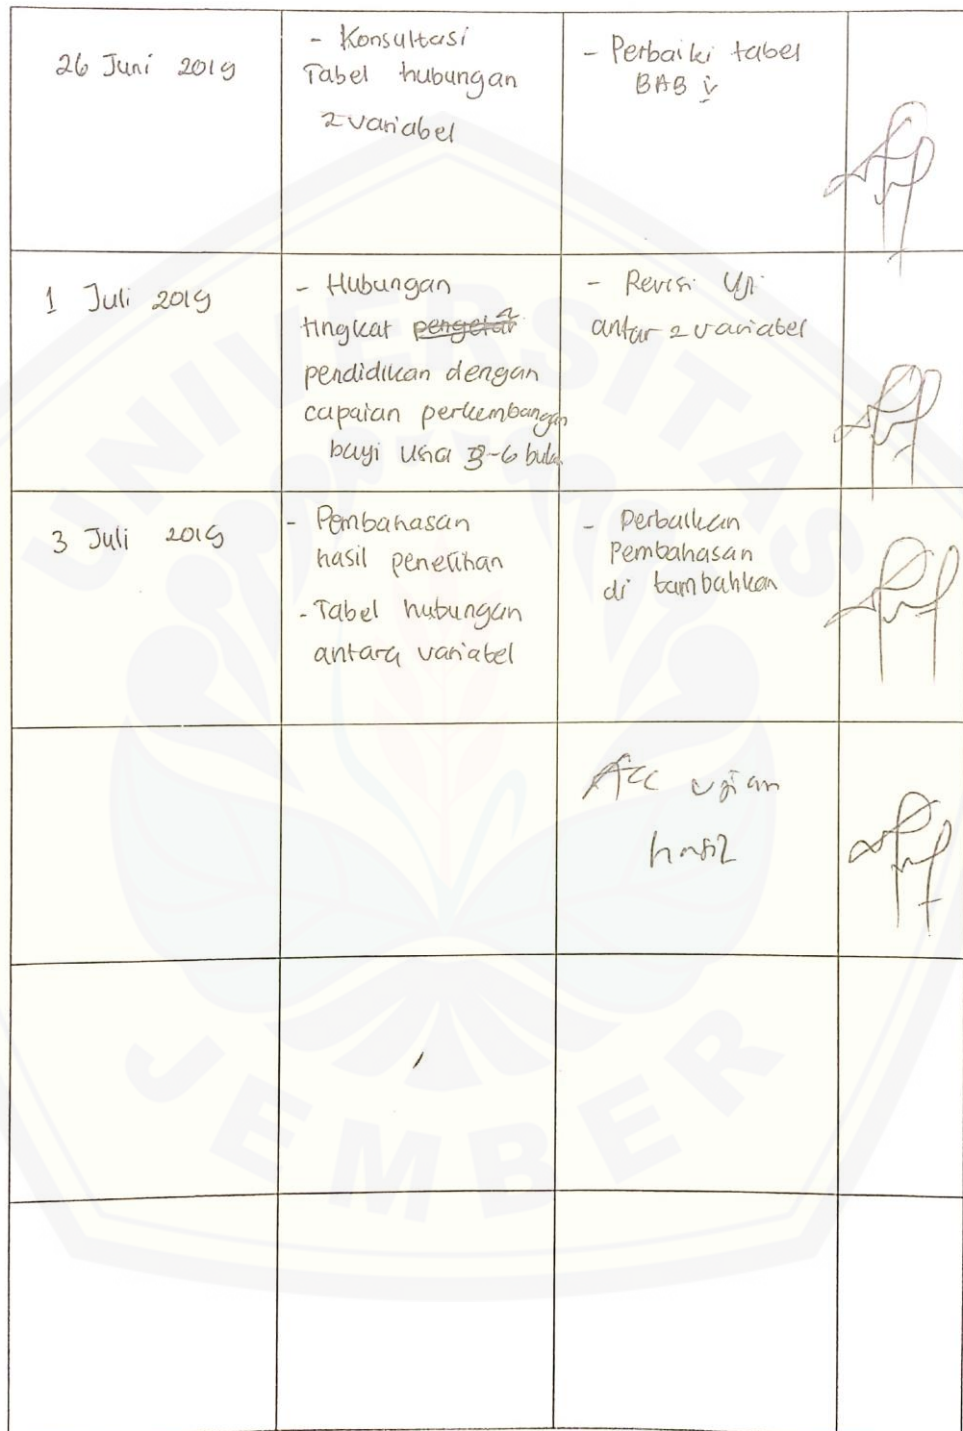 26 Juni 2019
- Konsultasi
Tabel hubungan
2 variabel
- Perbaiki tabel
BAB V
1 Juli 2019
- Hubungan
tingkat
pendidikan dengan
capaian perkembangan
bayi usia 3-6 bulan
- Revisi Uji
antar 2 variabel
3 Juli 2019
- Pembahasan
hasil penelitian
- Tabel hubungan
antara variabel
- Perbaikan
Pembahasan
di tambahkan
Acc ujian
hasil
UNIVERSITAS
JEMBER